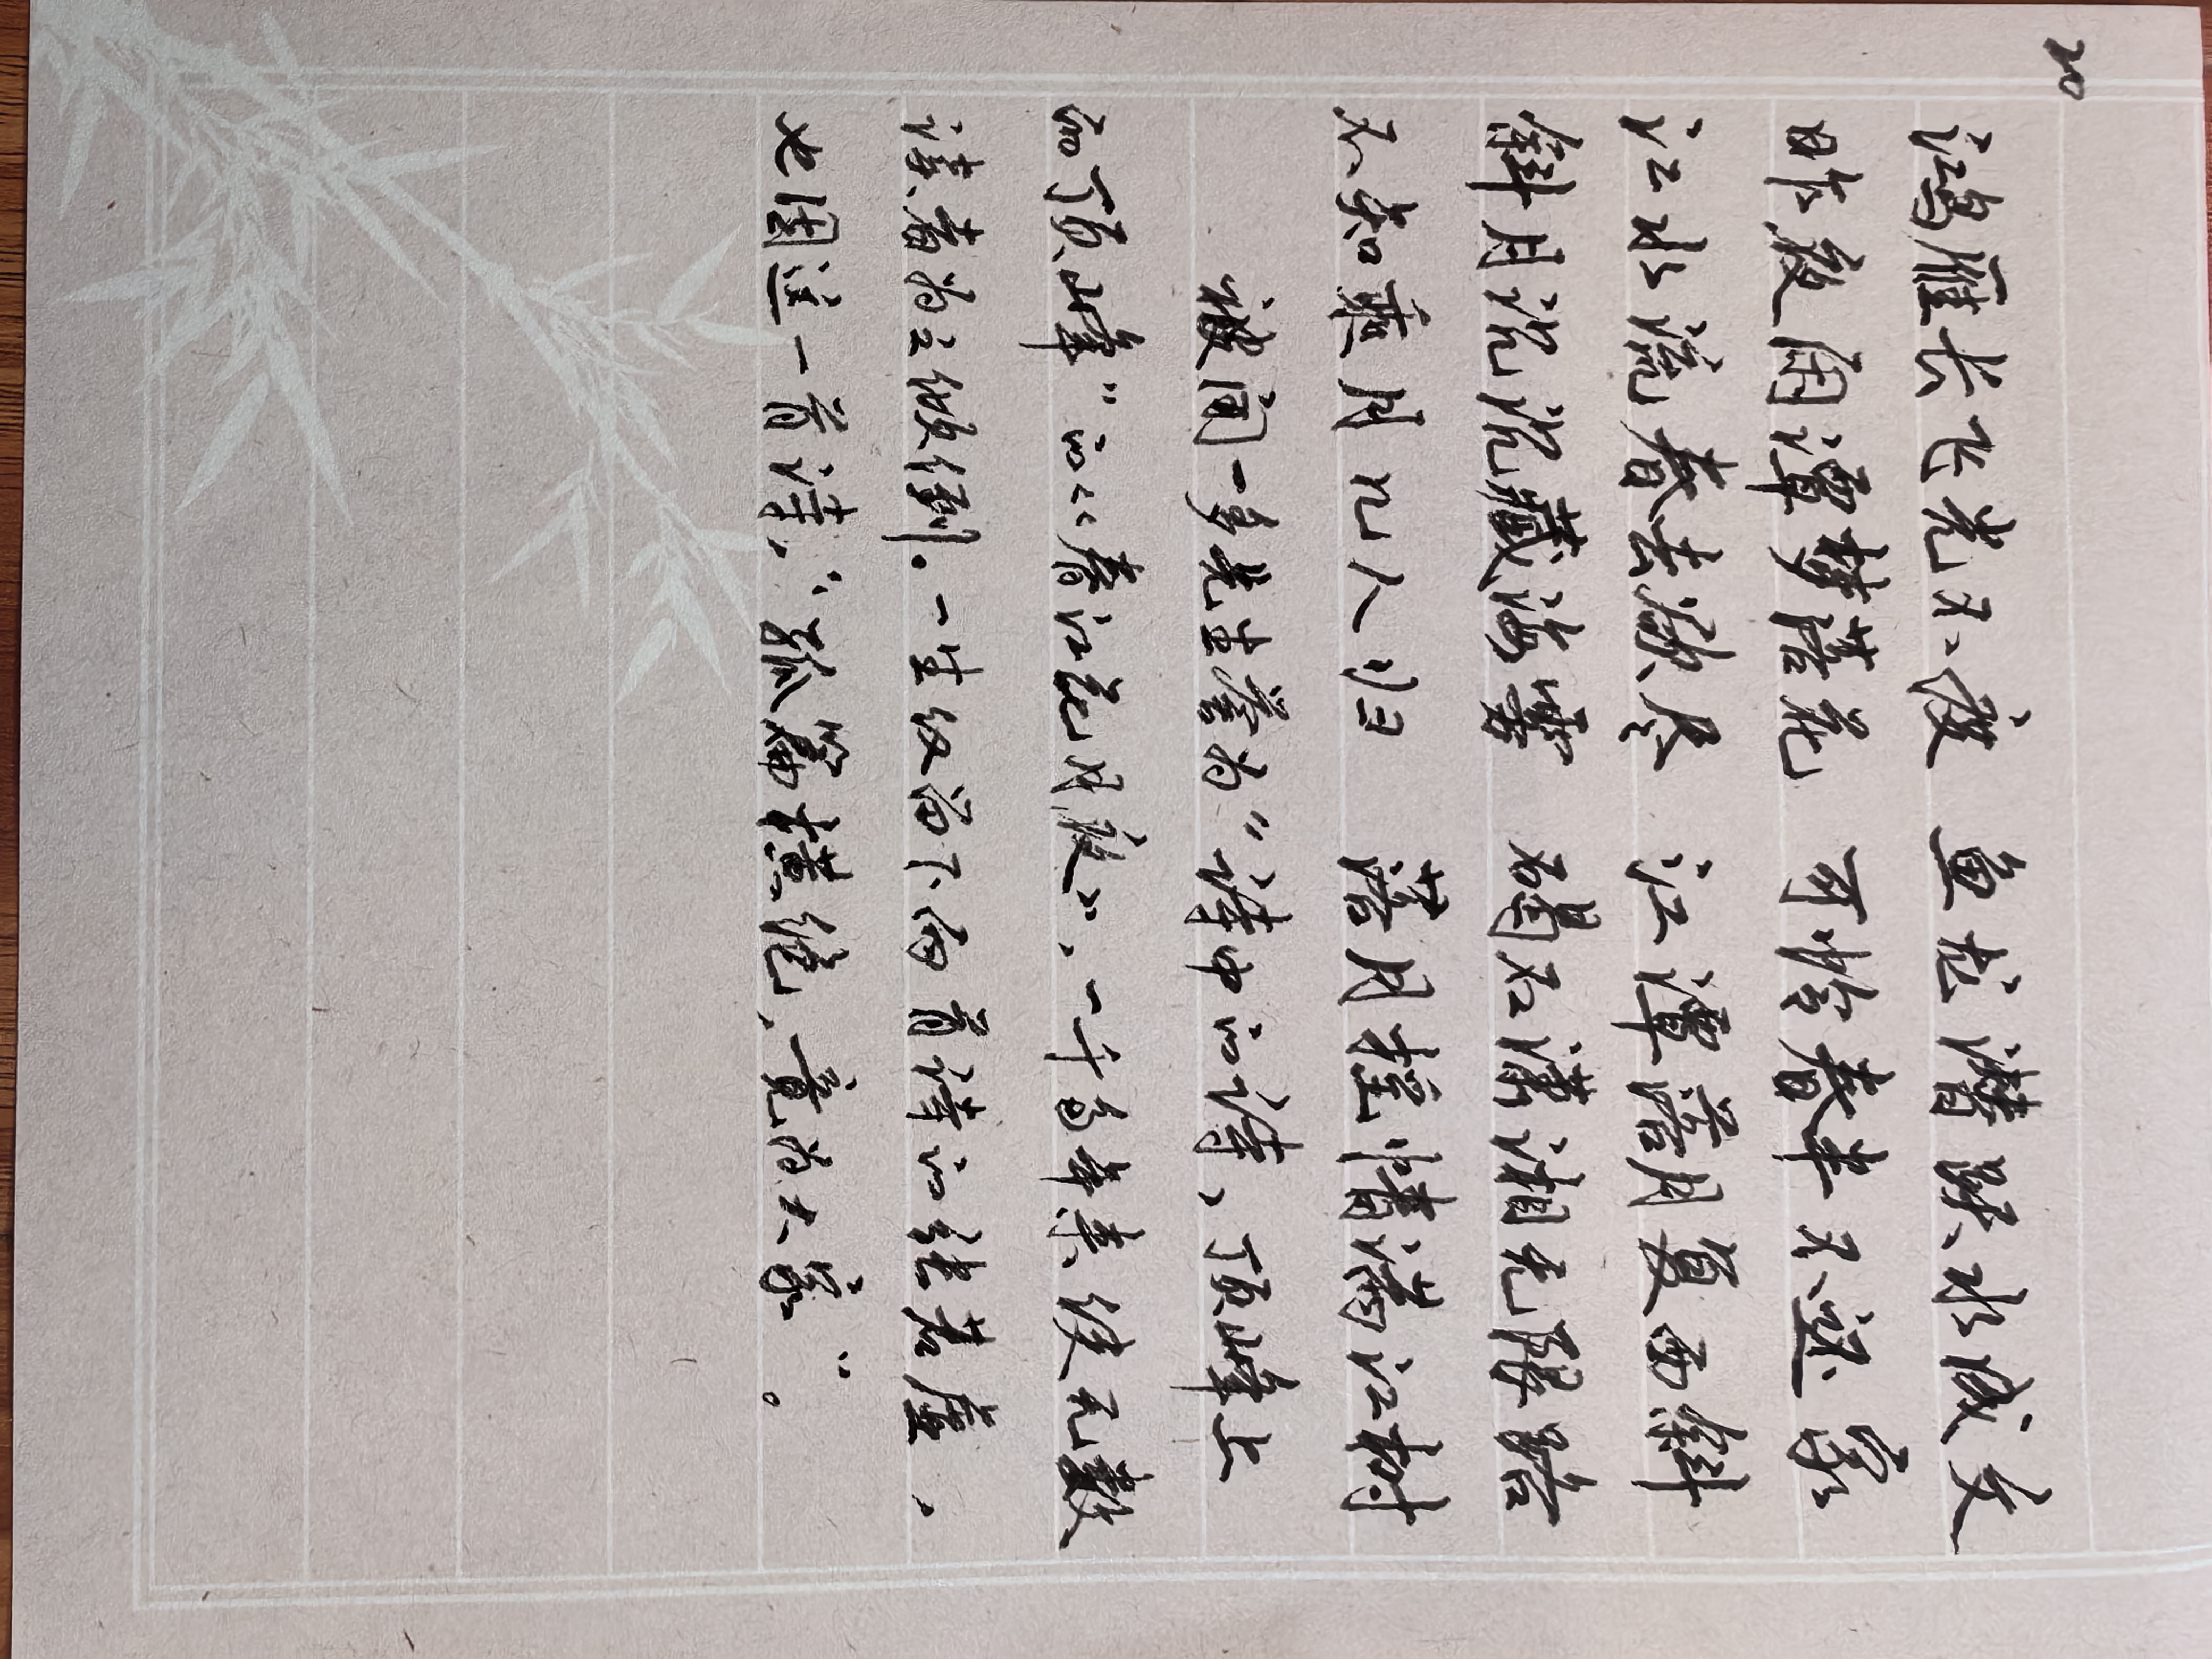 20
鸿雁长飞光不度 鱼龙潜跃水成文
昨夜闲潭梦落花 可怜春半不还家
江水流春去欲尽 江潭落月复西斜
斜月沉沉藏海雾 碣石潇湘无限路
不知乘月几人归 落月摇情满江树
被闻一多先生誉为“诗中的诗，顶峰上
的顶峰”的《春江花月夜》，一千多年来使无数
读者为之倾倒。一生仅留下两首诗的张若虚，
也因这一首诗，“孤篇横绝，竟为大家”。